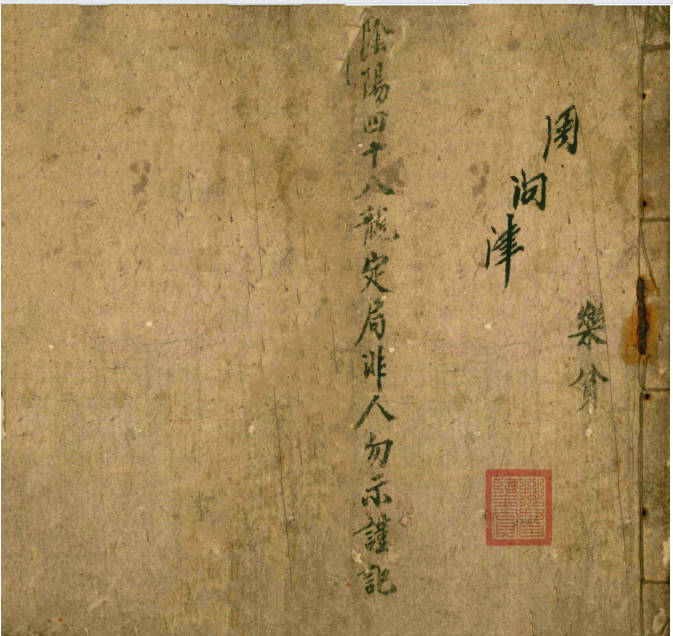 周問津
樂貧
陰陽四十八龍定局非人勿示謹記